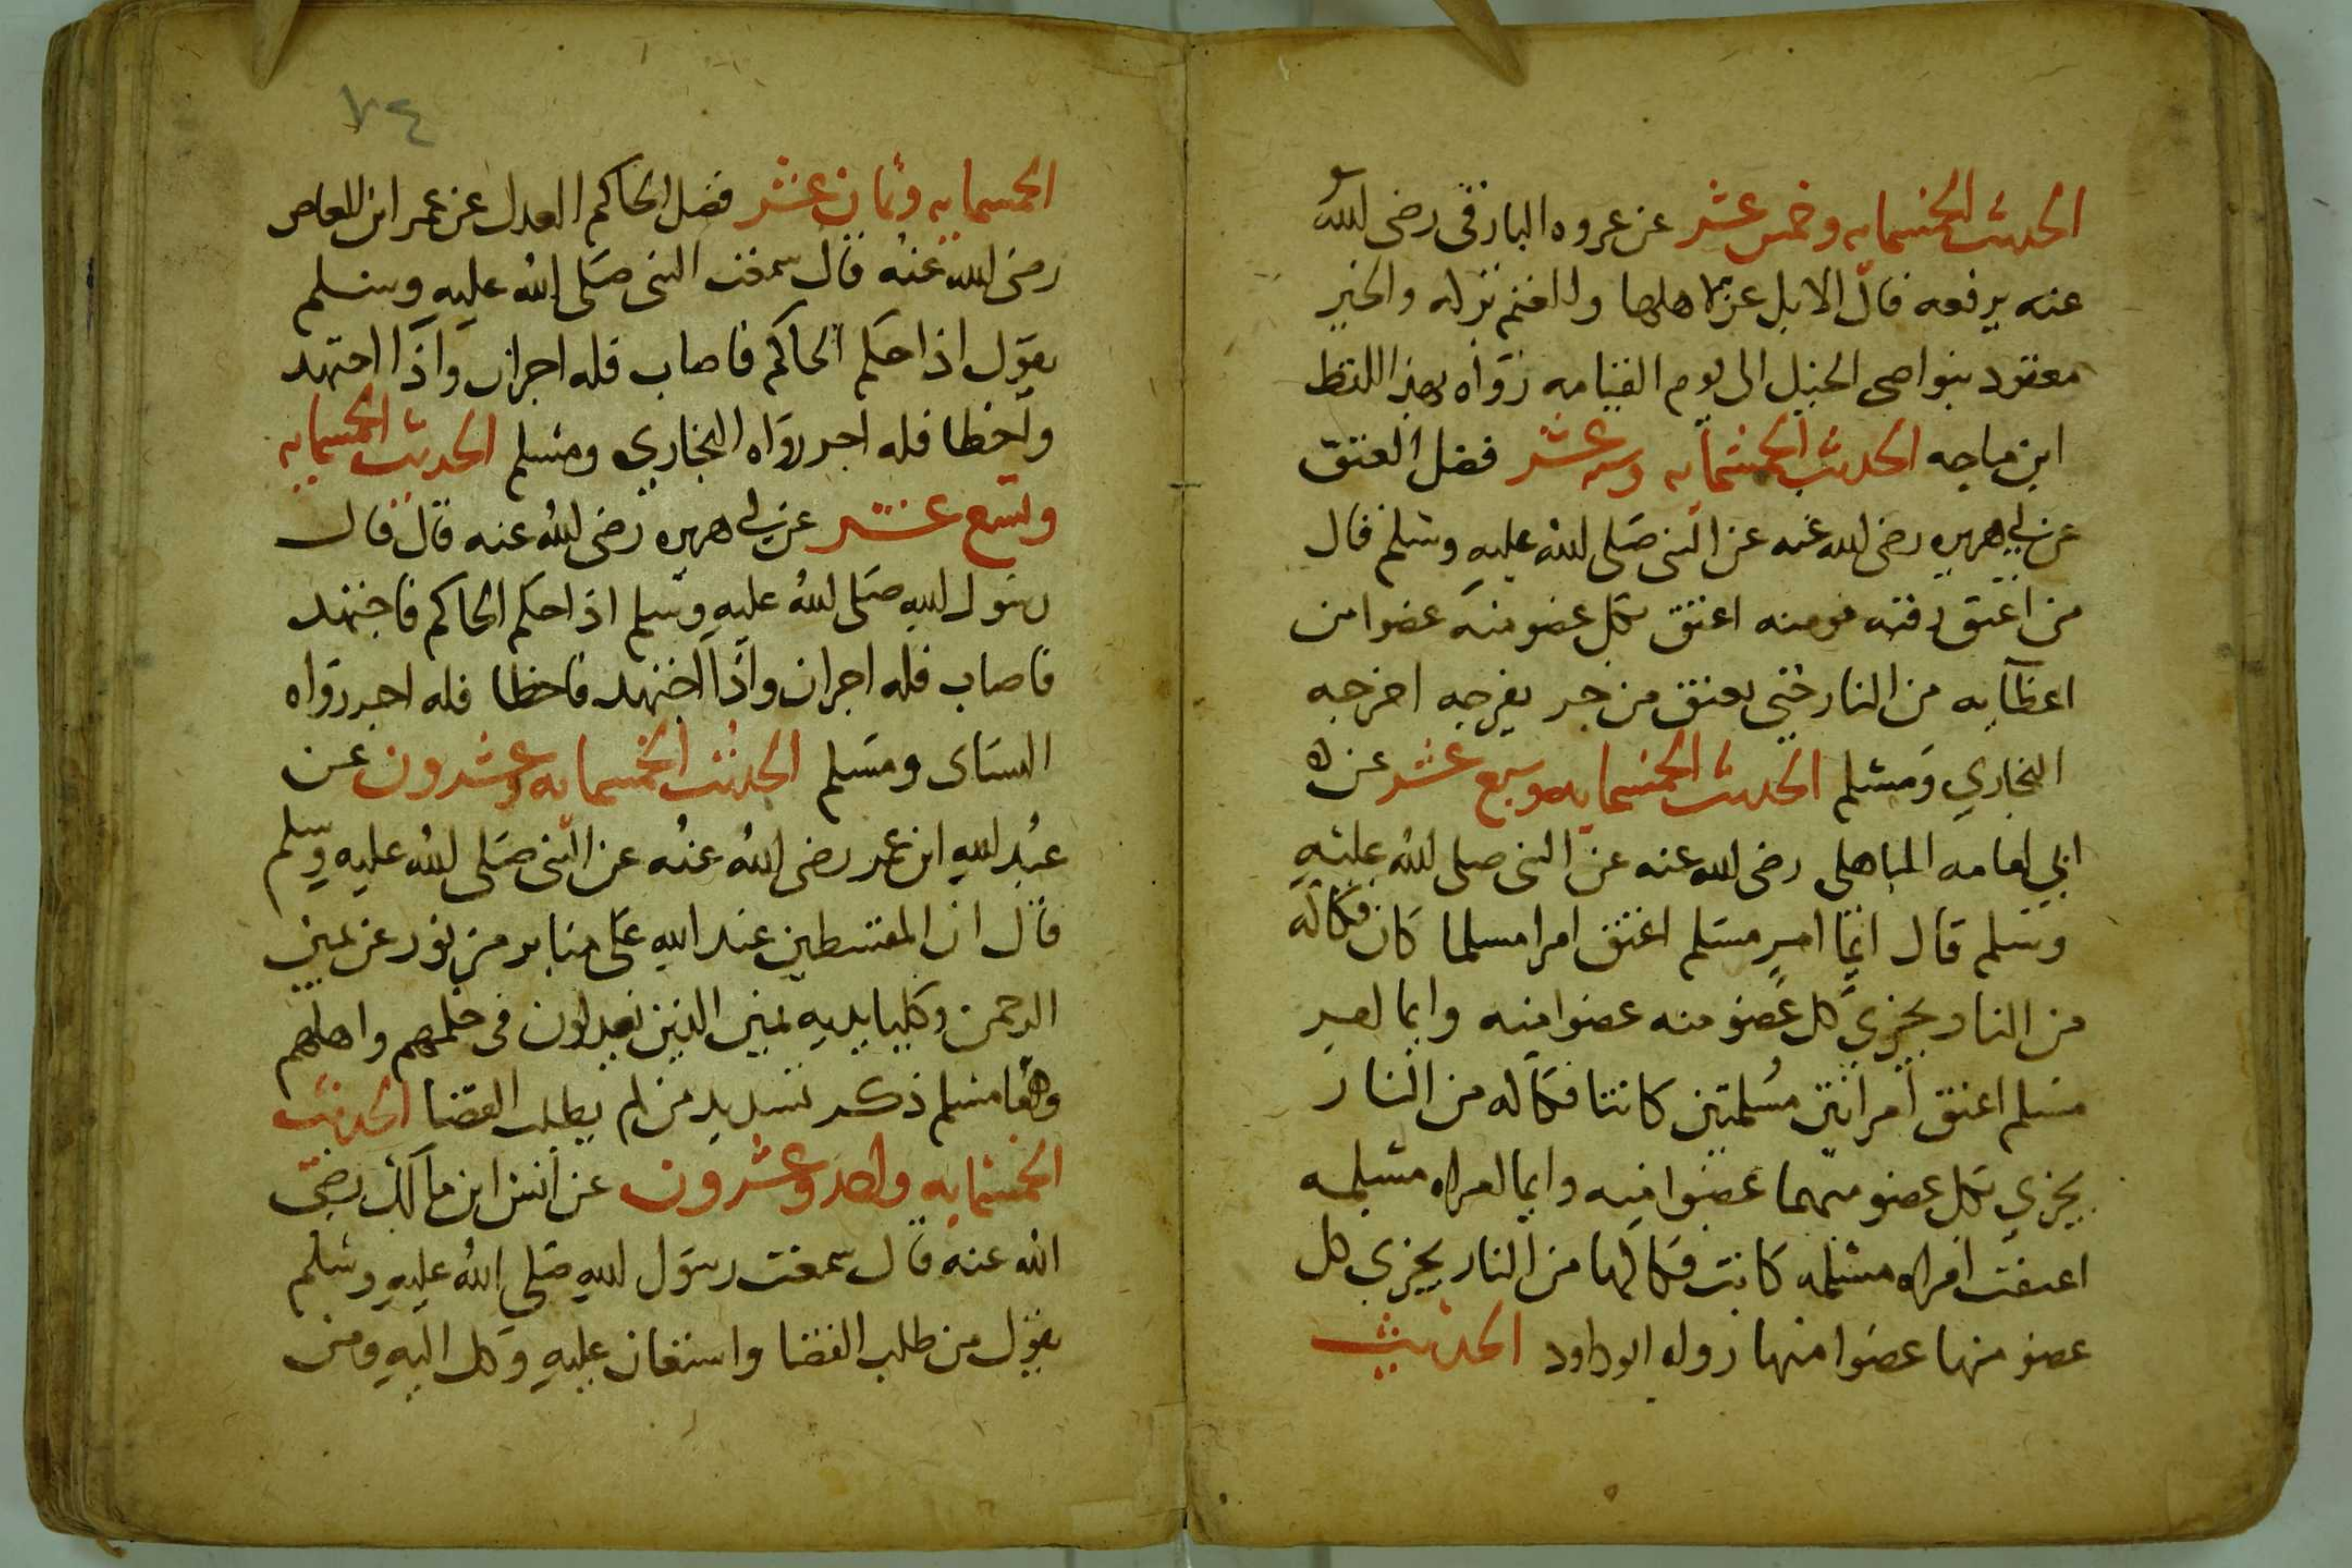 الحديث الخمسمايه وخمس عشر عن عروه البارقي رضى الله
عنه يرفعه قال الابل عز لاهلها والغنم بركه والخير
معقود بنواصى الخيل الى يوم القيامه رواه بهذا اللفظ
ابن ماجه الحديث الخمسمايه وسته عشر فضل العتق
عن ابي هريره رضى الله عنه عن النبى صلى الله عليه وسلم قال
من اعتق رقبه مومنه اعتق بكل عضو منه عضوا من
اعظآيه من النار حتى يعتق من جر بفرجه اخرجه
البخاري ومسلم الحديث الخمسمايه وسبع عشر عن
ابي امامه الباهلى رضى الله عنه عن النبى صلى الله عليه
وسلم قال ايما امرٍ مسلم اعتق امرا مسلما كان فكاكه
من النار يجزي كل عضو منه عضوا منه وايما امرِ
مسلم اعتق امراتين مسلمتين كانتا فكاكه من النار
يجزي بكل عضو منهما عضوا منه وايما امراه مسلمه
اعتقت امراه مسلمه كانت فكاكها من النار يجزي كل
عضو منها عضوا منها رواه ابو داود الحديث
٧٤
الخمسمايه وثمان عشر فضل الحاكم العدل عن عمر ابن العاص
رضى الله عنه قال سمعت النبى صلى الله عليه وسلم
يقول اذا حكم الحاكم فاصاب فله اجران واذا اجتهد
واخطا فله اجر رواه البخاري ومسلم الحديث الخمسمايه
وتسع عشر عن ابي هريره رضى الله عنه قال قال
رسول الله صلى الله عليه وسلم اذا حكم الحاكم فاجتهد
فاصاب فله اجران واذا اجتهد فاخطا فله اجر رواه
النساى ومسلم الحديث الخمسمايه وعشرون عن
عبد الله ابن عمر رضى الله عنه عن النبى صلى الله عليه وسلم
قال ان المقسطين عند الله على منابر من نور عن يمين
الرحمن وكليا يديه يمين الذين يعدلون فى حكمهم واهلهم
رواه مسلم ذكر تسديد من لم يطلب القضا الحديث
الخمسمايه واحد وعشرون عن انس ابن مالك رضى
الله عنه قال سمعت رسول الله صلى الله عليه وسلم
يقول من طلب القضا واستعان عليه وكل اليه ومن